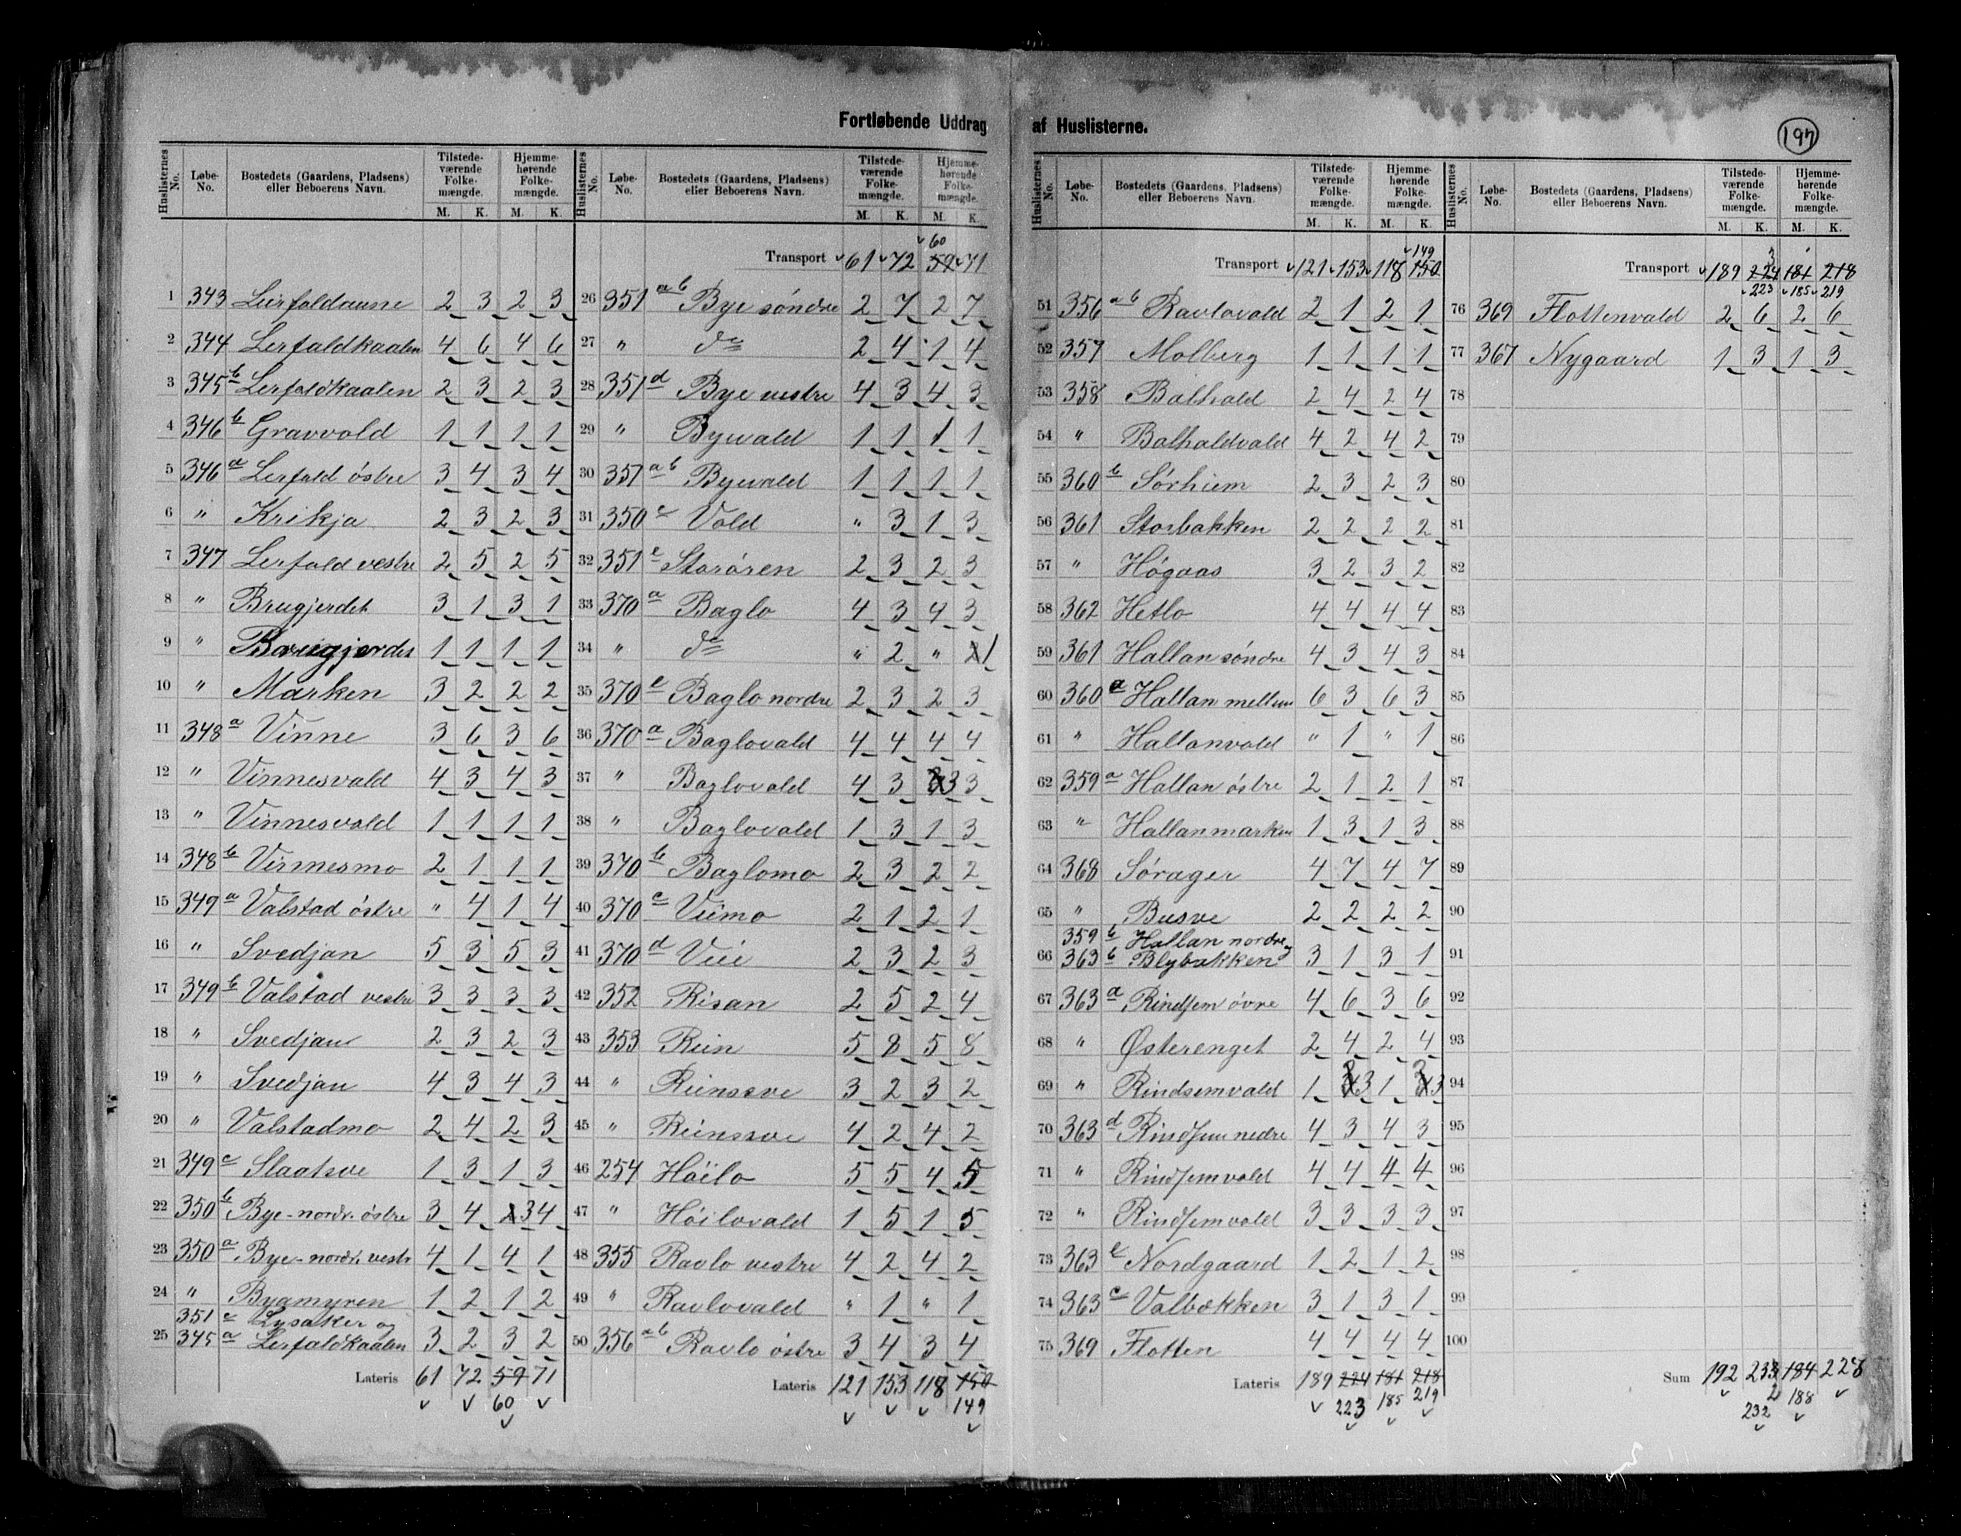 Fortløbende Uddrag af Huslisterne.
197
Huslisternes No. Løbe-No. Bostedets (Gaardens, Pladsens) eller Beboerens Navn. Tilstedeværende Folkemængde. M. K. Hjemmehørende Folkemængde. M. K.
1 343 Leirfaldaune 2 3 2 3
2 344 Lerfaldkaalen 4 6 4 6
3 345 b Lerfaldkaalen 2 3 2 3
4 346 b Gravvold 1 1 1 1
5 346 a Lerfald östre 3 4 3 4
6 " Krikja 2 3 2 3
7 347 Lerfald vestre 2 5 2 5
8 " Brugjerdet 3 1 3 1
9 " Brugjerdet 1 1 1 1
10 " Marken 3 2 2 2
11 348 a Vinne 3 6 3 6
12 " Vinnesvald 4 3 4 3
13 " Vinnesvald 1 1 1 1
14 348 b Vinnesmo 2 1 1 1
15 349 a Valstad östre " 4 1 4
16 " Svedjan 5 3 5 3
17 349 b Valstad vestre 3 3 3 3
18 " Svedjan 2 3 2 3
19 " Svedjan 4 3 4 3
20 " Valstadmo 2 4 2 3
21 349 c Slaatsve 1 3 1 3
22 350 b Bye-nordr. östre 3 4 3 4
23 350 a Bye-nordr. vestr 4 1 4 1
24 " Byamyren 1 2 1 2
351 a Lysaker og
25 345 a Lerfaldkaalen 3 2 3 2
Lateris 61 72 59 71
60
Huslisternes No. Løbe-No. Bostedets (Gaardens, Pladsens) eller Beboerens Navn. Tilstedeværende Folkemængde. M. K. Hjemmehørende Folkemængde. M. K.
60
Transport 61 72 59 71
26 351 ab Bye söndre 2 7 2 7
27 " do 2 4 1 4
28 351 d Bye vestre 4 3 4 3
29 " Byvald 1 1 1 1
30 351 ab Byvald 1 1 1 1
31 350 c Vold " 3 1 3
32 351 e Storören 2 3 2 3
33 370 a Baglo 4 3 4 3
34 " do " 2 " 1
35 370 e Baglo nordre 2 3 2 3
36 370 a Baglovald 4 4 4 4
37 " Baglovald 4 3 3 3
38 " Baglovald 1 3 1 3
39 370 b Baglomo 2 3 2 2
40 370 c Viimo 2 1 2 1
41 370 d Viii 2 3 2 3
42 352 Risan 2 5 2 4
43 353 Rein 5 8 5 8
44 " Reinssve 3 2 3 2
45 " Reinssve 4 2 4 2
46 254 Höilo 5 5 4 5
47 " Höilovald 1 5 1 5
48 355 Ravlo vestre 4 2 4 2
49 " Ravlovald " 1 " 1
50 356 ab Ravlo östre 3 4 3 4
Lateris 121 153 118 150
149
Huslisternes No. Løbe-No. Bostedets (Gaardens, Pladsens) eller Beboerens Navn. Tilstedeværende Folkemængde. M. K. Hjemmehørende Folkemængde. M. K.
149
Transport 121 153 118 150
51 356 ab Ravlovald 2 1 2 1
52 357 Molberg 1 1 1 1
53 358 Balhald 2 4 2 4
54 " Balhaldvald 4 2 4 2
55 360 b Sørhiem 2 3 2 3
56 361 Storbakken 2 2 2 2
57 " Høgaas 3 2 3 2
58 362 Hetlo 4 4 4 4
59 361 Hallan søndre 4 3 4 3
60 360 a Hallan mellem 6 3 6 3
61 " Hallanvald " 1 " 1
62 359 a Hallan östre 2 1 2 1
63 " Hallanmarken 1 3 1 3
64 368 Sørager 4 7 4 7
65 " Busve 2 2 2 2
359 b Hallan nordre og
66 363 b Blybakken 3 1 3 1
67 363 a Rindsem övre 4 6 3 6
68 " Østerenget 2 4 2 4
69 " Rindsemvald 1 3 1 3
70 363 d Rindsem nedre 4 3 4 3
71 " Rindsemvald 4 4 4 4
72 " Rindsemvald 3 3 3 3
73 363 e Nordgaard 1 2 1 2
74 363 c Valbækken 3 1 3 1
75 369 Flotten 4 4 4 4
Lateris 189 224 181 218
223 185 219
Huslisternes No. Løbe-No. Bostedets (Gaardens, Pladsens) eller Beboerens Navn. Tilstedeværende Folkemængde. M. K. Hjemmehørende Folkemængde. M. K.
Transport 189 224 181 218
223 185 219
76 369 Flottenvald 2 6 2 6
77 367 Nygaard 1 3 1 3
78
79
80
81
82
83
84
85
86
87
88
89
90
91
92
93
94
95
96
97
98
99
100
Sum 192 233 184 228
232 188